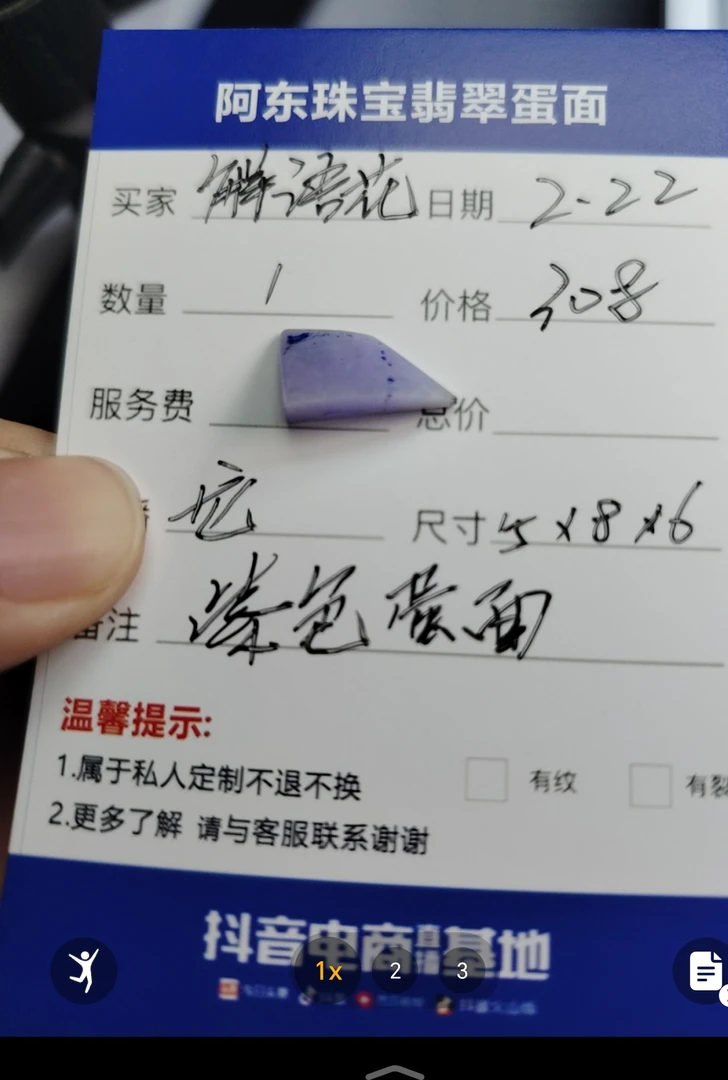 阿东珠宝翡翠蛋面
买家 解语花 日期 2-22
数量 1 价格 308
服务费 总价
尺寸 5x8x6
备注 紫色蛋面
温馨提示:
1.属于私人定制不退不换 有纹 有裂
2.更多了解 请与客服联系谢谢
抖音电商直播基地
1x 2 3